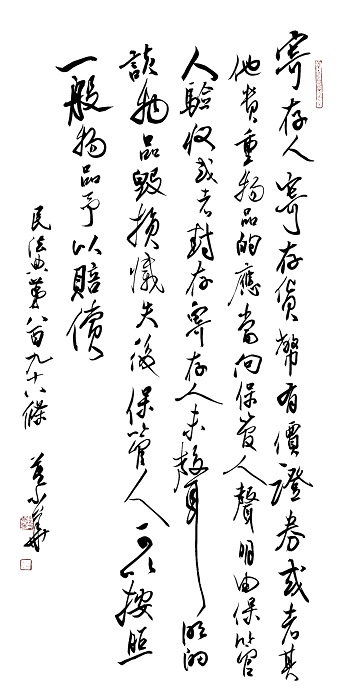 寄存人寄存貨幣有價證券或者其
他貴重物品的應當向保管人聲明由保管
人驗收或者封存寄存人未聲明的
該物品毀損滅失後保管人可以按照
一般物品予以賠償
民法典第八百九十八條